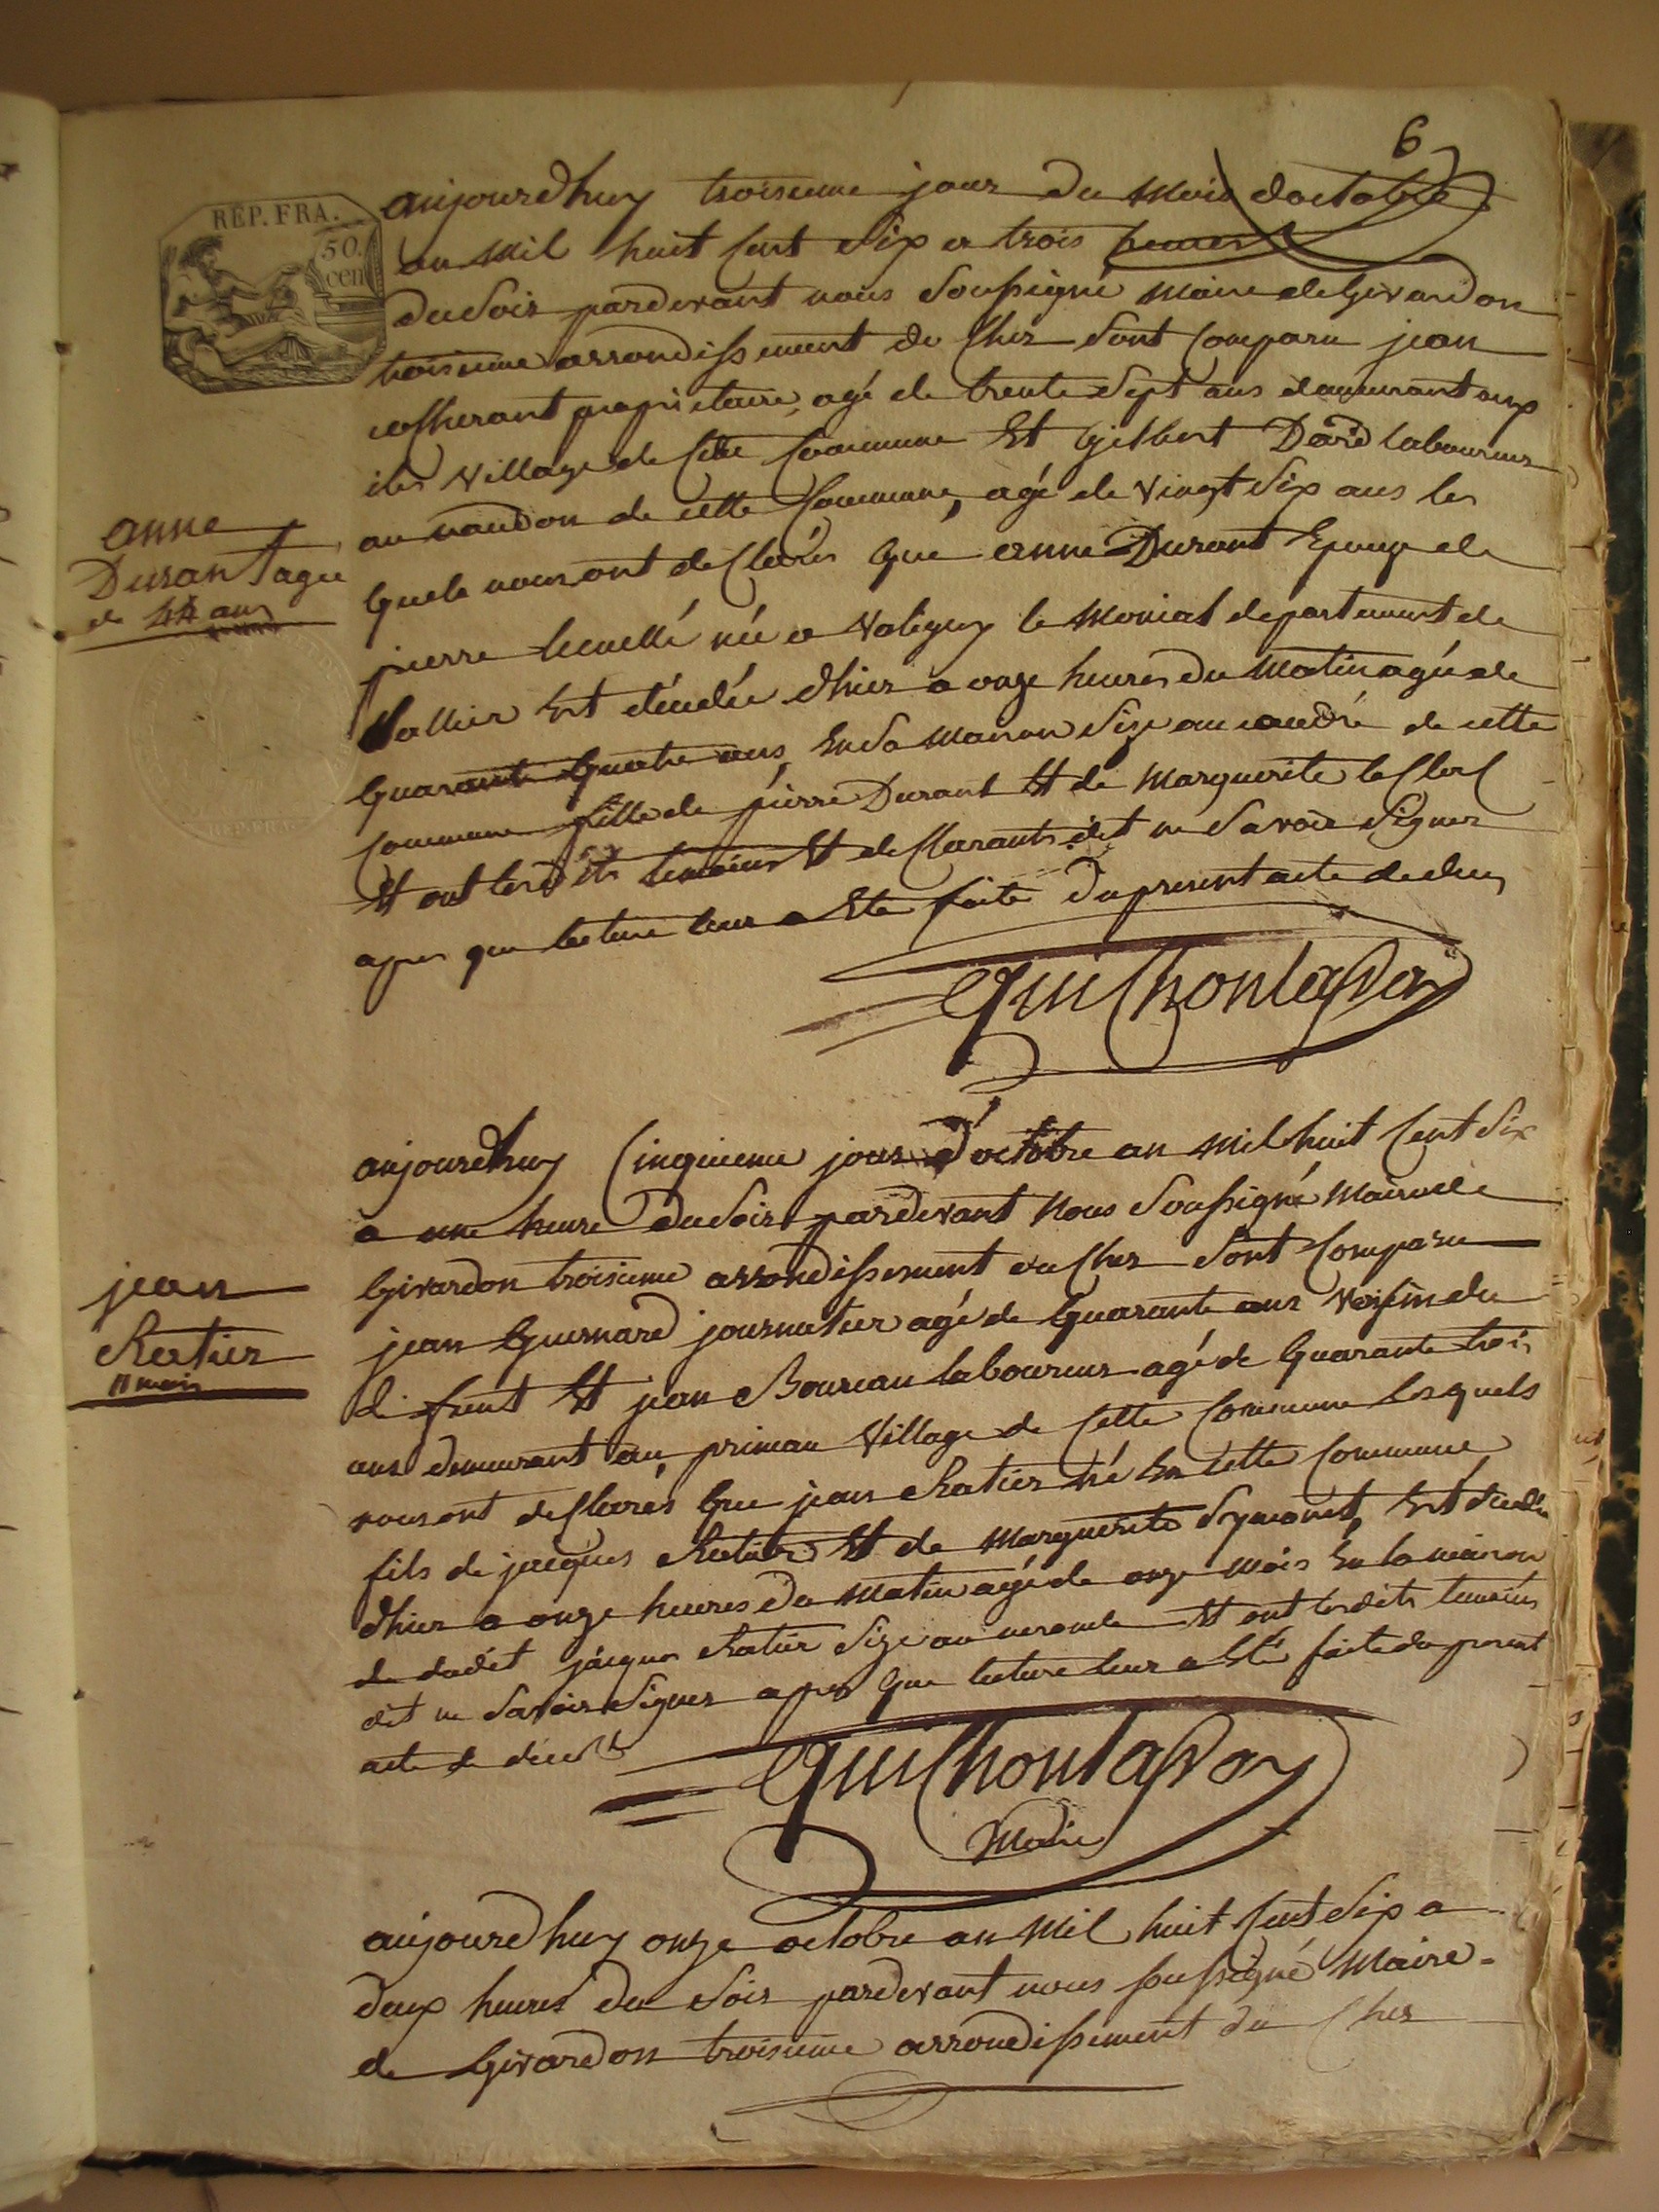 6
REP. FRA.
50
cen
aujourdhuy troisieme jour du mois doctobre
an mil huit cent six a trois heures
du soir pardevant nous soussigné maire de Givardon
troisieme arrondissement du Cher sont comparu jean
proprietaire, agé de trente sept ans demeurant aux
village de cette commune et gilbert David laboureur
au de cette commune, agé de vingt six ans les
quels nous ont declarés que anne Durant epouse de
pierre née a Valigny le Monial departement de
lallier est décédée dhier a onze heures du matin agée de
quarante quatre ans, en sa maison size au de cette
commune fille de pierre Durant et de marguerite leclerc
et ont lesdits temoins et declarants dit ne savoir signer
apres que lecture leur a ete faite du present acte de deces
anne
Durant agée
de 44 ans
aujourdhuy cinquieme jour d'octobre an mil huit cent six
a une heure du soir pardevant nous soussigné maire de
Givardon troisieme arrondissement du Cher sont comparu
jean journalier agé de quarante ans voisin du
defunt et jean Boureau laboureur agé de quarante trois
ans demeurant au village de cette commune lesquels
nous ont declarés que jean Ratier né en cette commune
fils de jacques Ratier et de marguerite est décédé
dhier a onze heures du matin agé de onze mois en la maison
de dudit jacques Ratier size au et ont lesdits temoins
dit ne savoir signer apres que lecture leur a eté faite du present
acte de décès
jean
Ratier
11 mois
Maire
aujourdhuy onze octobre an mil huit cent six a
deux heures du soir pardevant nous soussigné Maire
de Givardon troisieme arrondissement du Cher